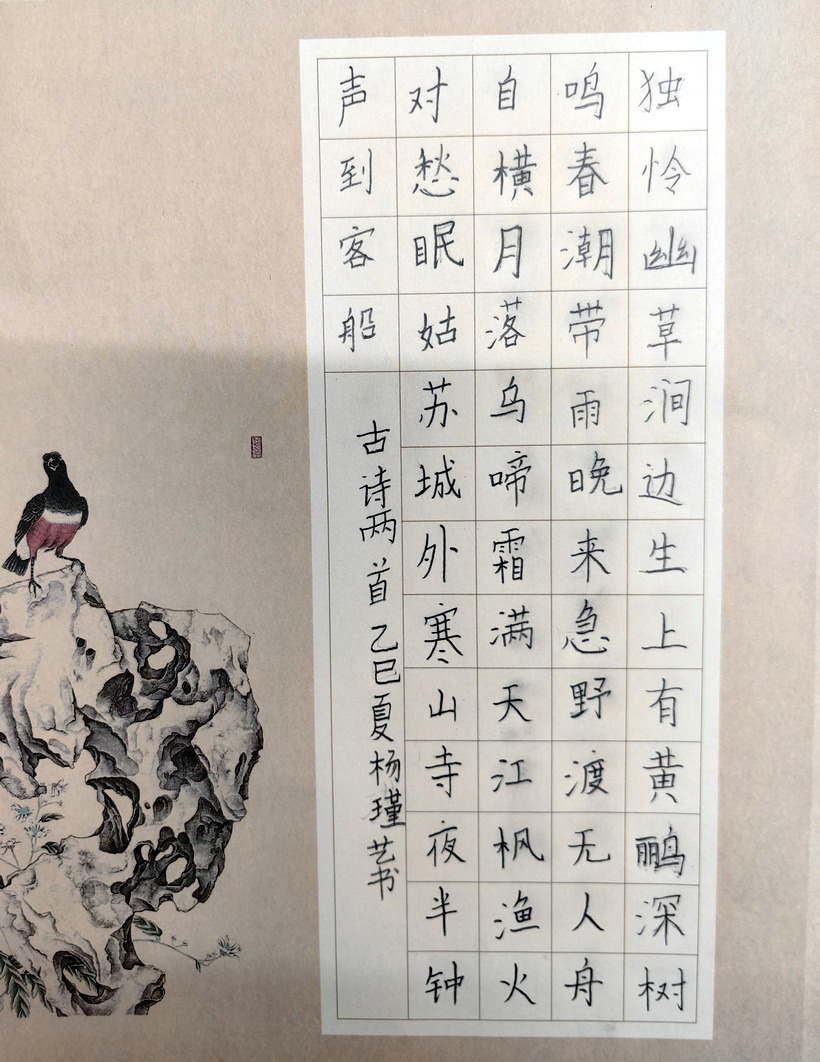 独怜幽草涧边生上有黄鹂深树
鸣春潮带雨晚来急野渡无人舟
自横月落乌啼霜满天江枫渔火
对愁眠姑苏城外寒山寺夜半钟
声到客船
古诗两首乙巳夏杨瑾艺书